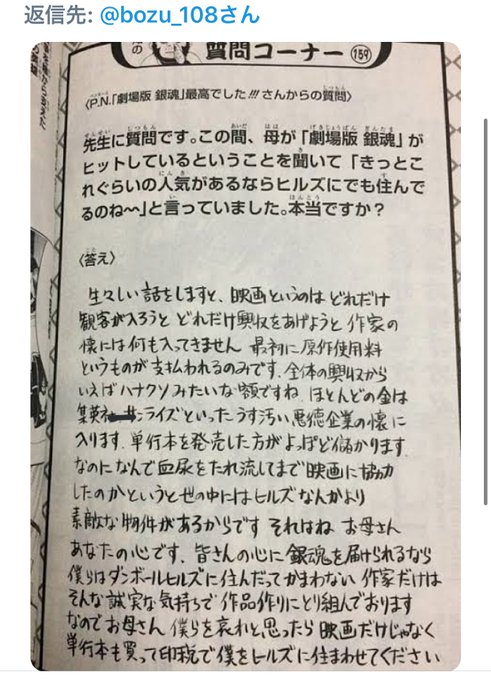 返信先: @bozu_108さん
の 質問コーナー 159
〈P.N.「劇場版 銀魂」最高でした!!!さんからの質問〉
先生に質問です。この間、母が「劇場版 銀魂」が
ヒットしているということを聞いて「きっとこ
れぐらいの人気があるならヒルズにでも住んで
るのね〜」と言っていました。本当ですか?
〈答え〉
生々しい話をしますと、映画というのは どれだけ
観客が入ろうと どれだけ興収をあげようと 作家の
懐には何も入ってきません 最初に原作使用料
というものが支払われるのみです。全体の興収から
いえばハナクソみたいな額ですね。ほとんどの金は
集英社 サンライズといったうす汚い悪徳企業の懐に
入ります。単行本を発売した方がよっぽど儲かります
なのになんで血尿をたれ流してまで映画に協力
したのかというと世の中にはヒルズなんかより
素敵な物件があるからです それはね お母さん
あなたの心です。皆さんの心に 銀魂を届けられるなら
僕らはダンボールヒルズに住んだってかまわない 作家だけは
そんな誠実な気持ちで 作品作りにとり組んでおります
なのでお母さん 僕らを哀れと思ったら 映画だけじゃなく
単行本も買って印税で僕をヒルズに住まわせてください